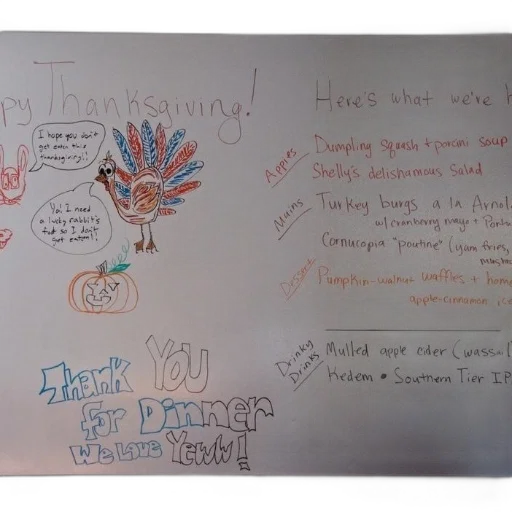 ppy Thanksgiving!
I hope you don't
get eaten this
thanksgiving!!
Yo! I need
a lucky rabbit's
foot so I don't
get eaten!!
Thank YOU
for Dinner
We Love Yeww!
Here's what we're h
Apples
Dumpling squash + porcini soup
Shelly's delishamous salad
Mains
Turkey burgs a la Arnol
w/ cranberry mayo +
Cornucopia "poutine" (yam fries,
Dessert
Pumpkin-walnut waffles + hom
apple-cinnamon ice
Drinky
Drinks
Mulled apple cider (wassail
Kedem • Southern Tier IP